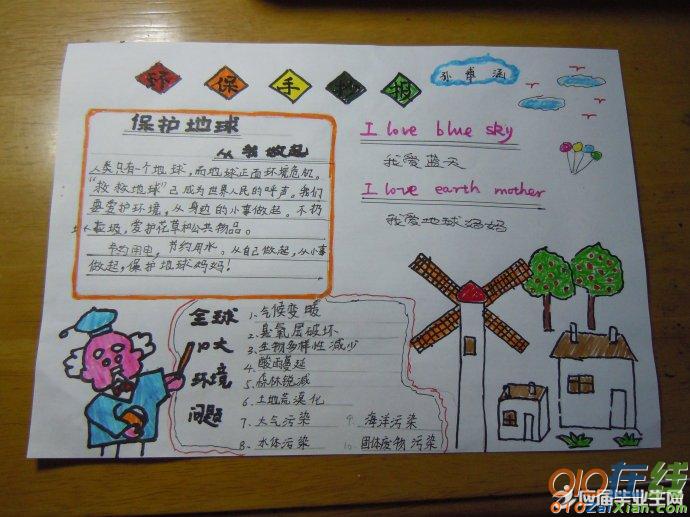 环 保 手 抄 报
保护地球
从我做起
人类只有一个地球,而地球正面环境危机。
“救救地球”已成为世界人民的呼声。我们
要爱护环境,从身边的小事做起。不扔
垃圾,爱护花草和公共物品。
节约用电,节约用水。从自己做起,从小事
做起,保护地球妈妈!
I love blue sky
我爱蓝天
I love earth mother
我爱地球妈妈
全球
十大
环境
问题
1、气候变暖
2、臭氧层破坏
3、生物多样性减少
4、酸雨蔓延
5、森林锐减
6、土地荒漠化
7、大气污染
8、水体污染
9、海洋污染
10、固体废物污染
010在线
应届毕业生网
010ZaiXian.com